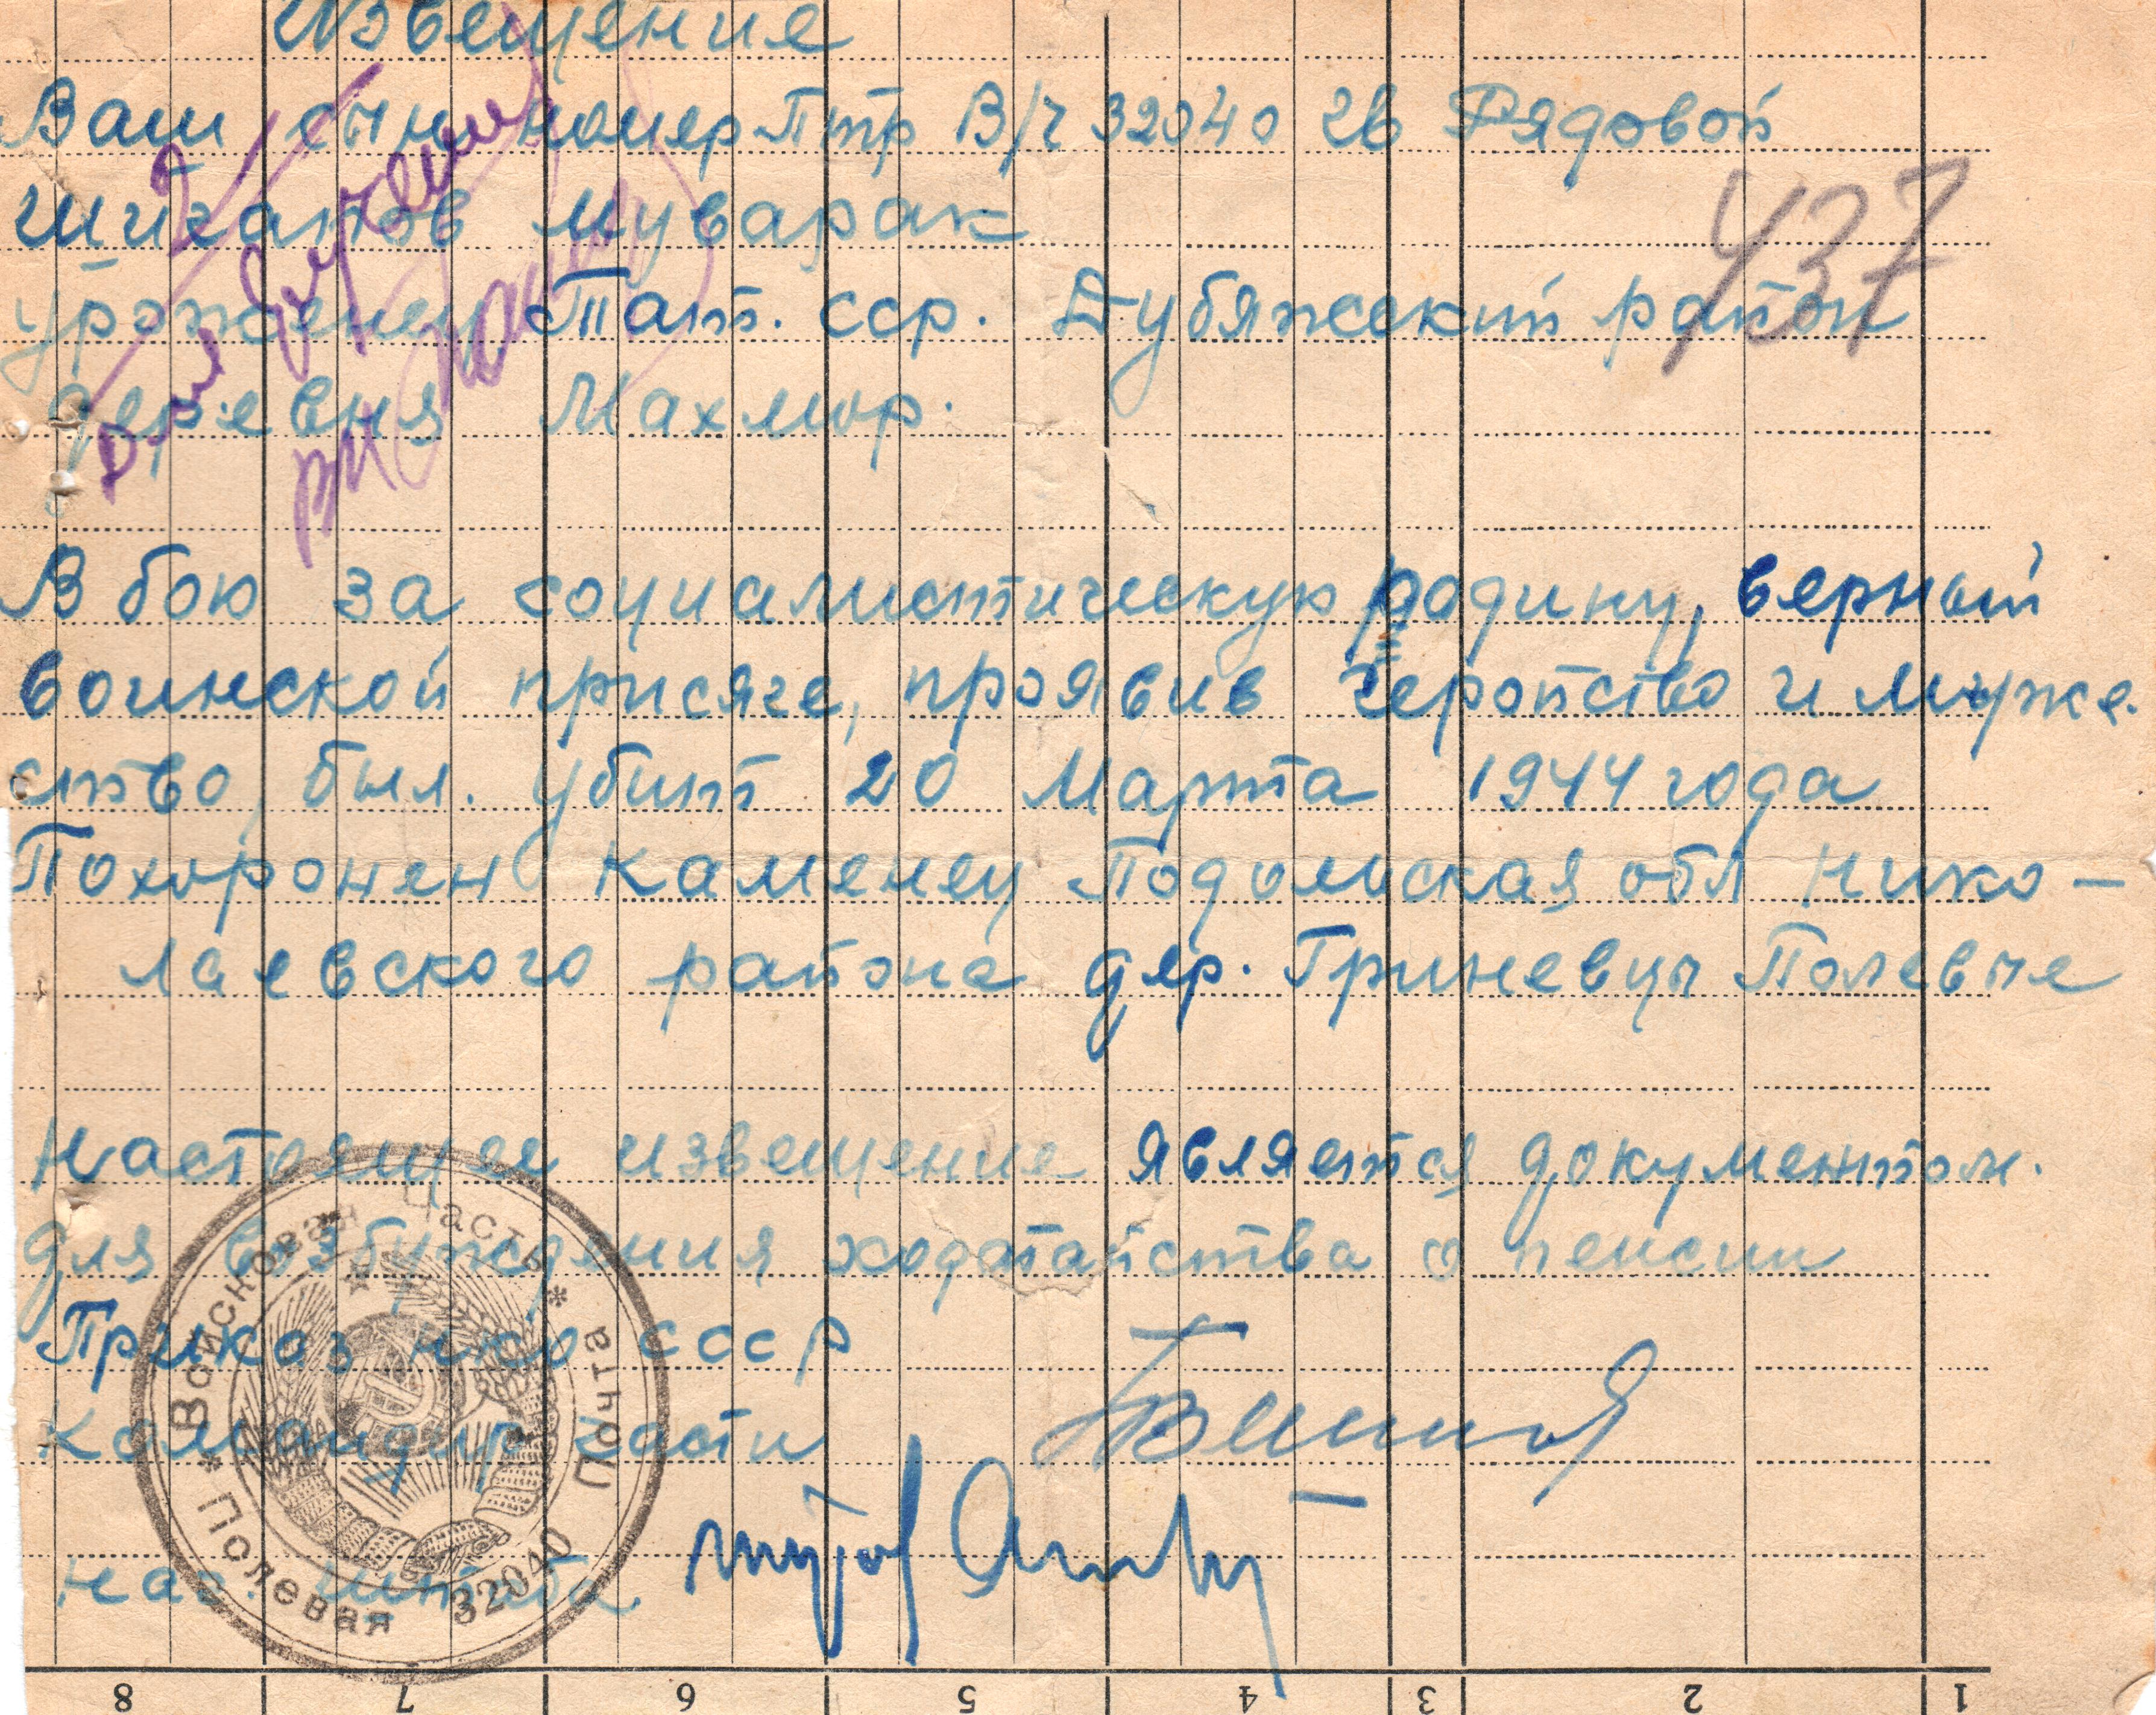 Извещение
Ваш сын номер Птр В/ч 32040 гв Рядовой
Шигапов Муварак
437
уроженец Тат. сср. Дубяжский район
деревня Махмор.
В бою за социалистическую родину, верный
воинской присяге, проявив геройство и муже.
ство, был. убит 20 Марта 1944 года
Похоронен Каменец Подольская обл Нико-
лаевского района дер. Гриневцы Полевые
Настоящее извещение является документом.
для возбуждения ходатайства о пенсии
Приказ нко СССР
Командир части
нач. штаба
Войсковая Часть * Полевая Почта 32040
8 7 6 5 4 3 2 1